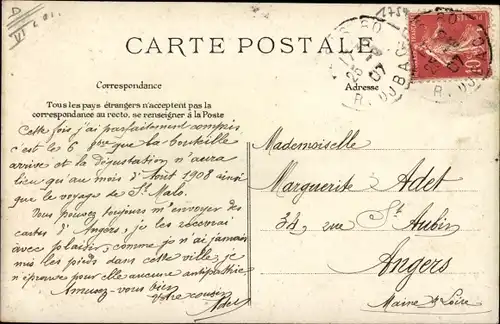 D
VI L 01
1754
CARTE POSTALE
Correspondance
Adresse
Tous les pays étrangers n'acceptent pas la
correspondance au recto. se renseigner à la Poste
ROUBAIX
25
07
10
Cette fois j'ai parfaitement compris
c'est les 6 que la bouteille
arrive et la dégustation n'aura
lieu qu'au mois d'Août 1908 ainsi
que le voyage de St. Malo.
Vous pouvez toujours m'envoyer des
cartes d'Angers, je les recevrai
avec plaisir, comme je n'ai jamais
mis les pieds dans cette ville, je
n'éprouve pour elle aucune antipathie
Amusez-vous bien
Votre cousin
Adet
Mademoiselle
Marguerite Adet
32, rue St Aubin
Angers
Maine & Loire